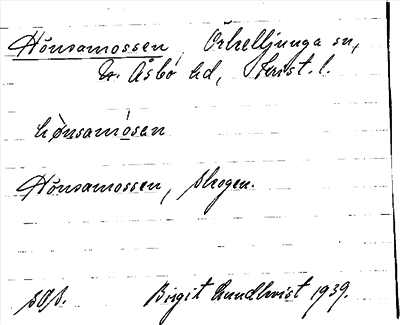 Hönsamossen, Örkelljunga sn,
N. Åsbo hd, Krist. l.
hø̀nsamósan
Hönsamossen, skogen.
Birgit Lundkvist 1939.